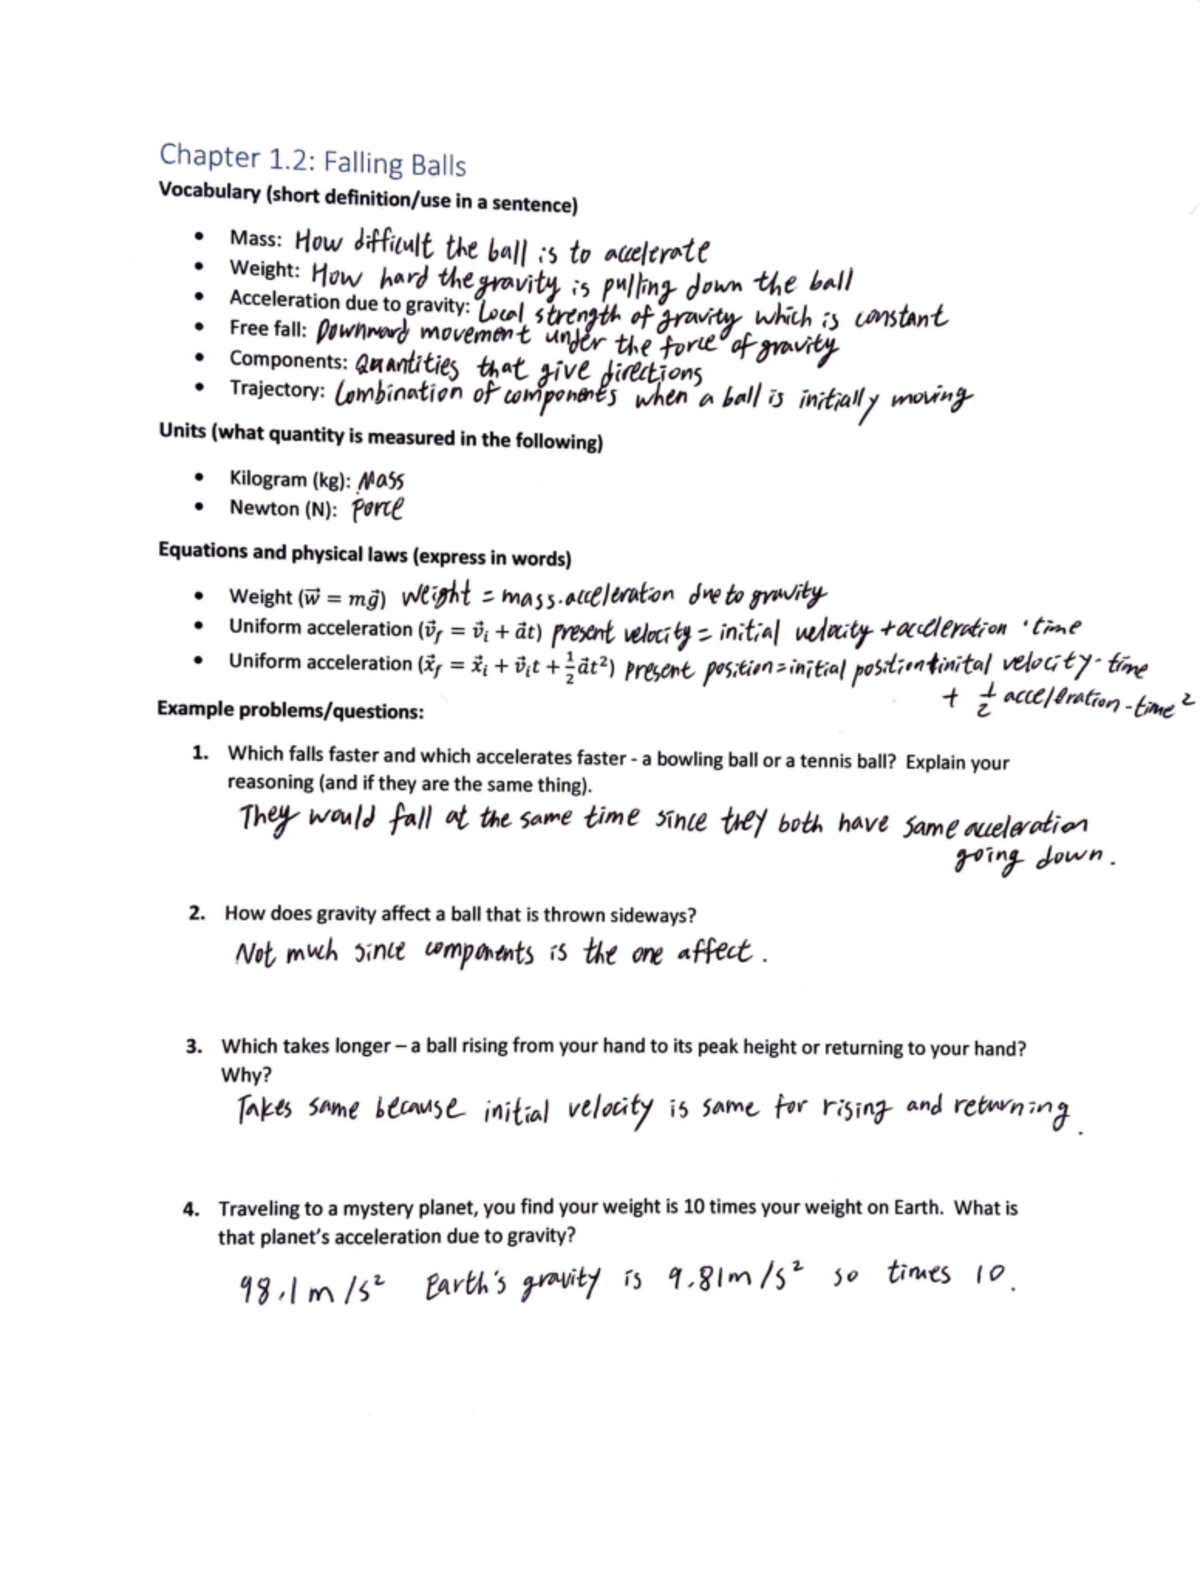 Chapter 1.2: Falling Balls
Vocabulary (short definition/use in a sentence)
• Mass: How difficult the ball is to accelerate
• Weight: How hard the gravity is pulling down the ball
• Acceleration due to gravity: Local strength of gravity which is constant
• Free fall: Downward movement under the force of gravity
• Components: Quantities that give directions
• Trajectory: Combination of components when a ball is initially moving
Units (what quantity is measured in the following)
• Kilogram (kg): Mass
• Newton (N): Force
Equations and physical laws (express in words)
• Weight (w⃗ = mg⃗) weight = mass·acceleration due to gravity
• Uniform acceleration (v⃗f = v⃗i + a⃗t) present velocity = initial velocity + acceleration · time
• Uniform acceleration (x⃗f = x⃗i + v⃗it + ½a⃗t²) present position = initial position + inital velocity · time
+ ½ acceleration - time²
Example problems/questions:
1. Which falls faster and which accelerates faster - a bowling ball or a tennis ball? Explain your
reasoning (and if they are the same thing).
They would fall at the same time since they both have same acceleration
going down.
2. How does gravity affect a ball that is thrown sideways?
Not much since components is the one affect.
3. Which takes longer – a ball rising from your hand to its peak height or returning to your hand?
Why?
Takes same because initial velocity is same for rising and returning.
4. Traveling to a mystery planet, you find your weight is 10 times your weight on Earth. What is
that planet's acceleration due to gravity?
98.1 m/s² Earth's gravity is 9.81m/s² so times 10.